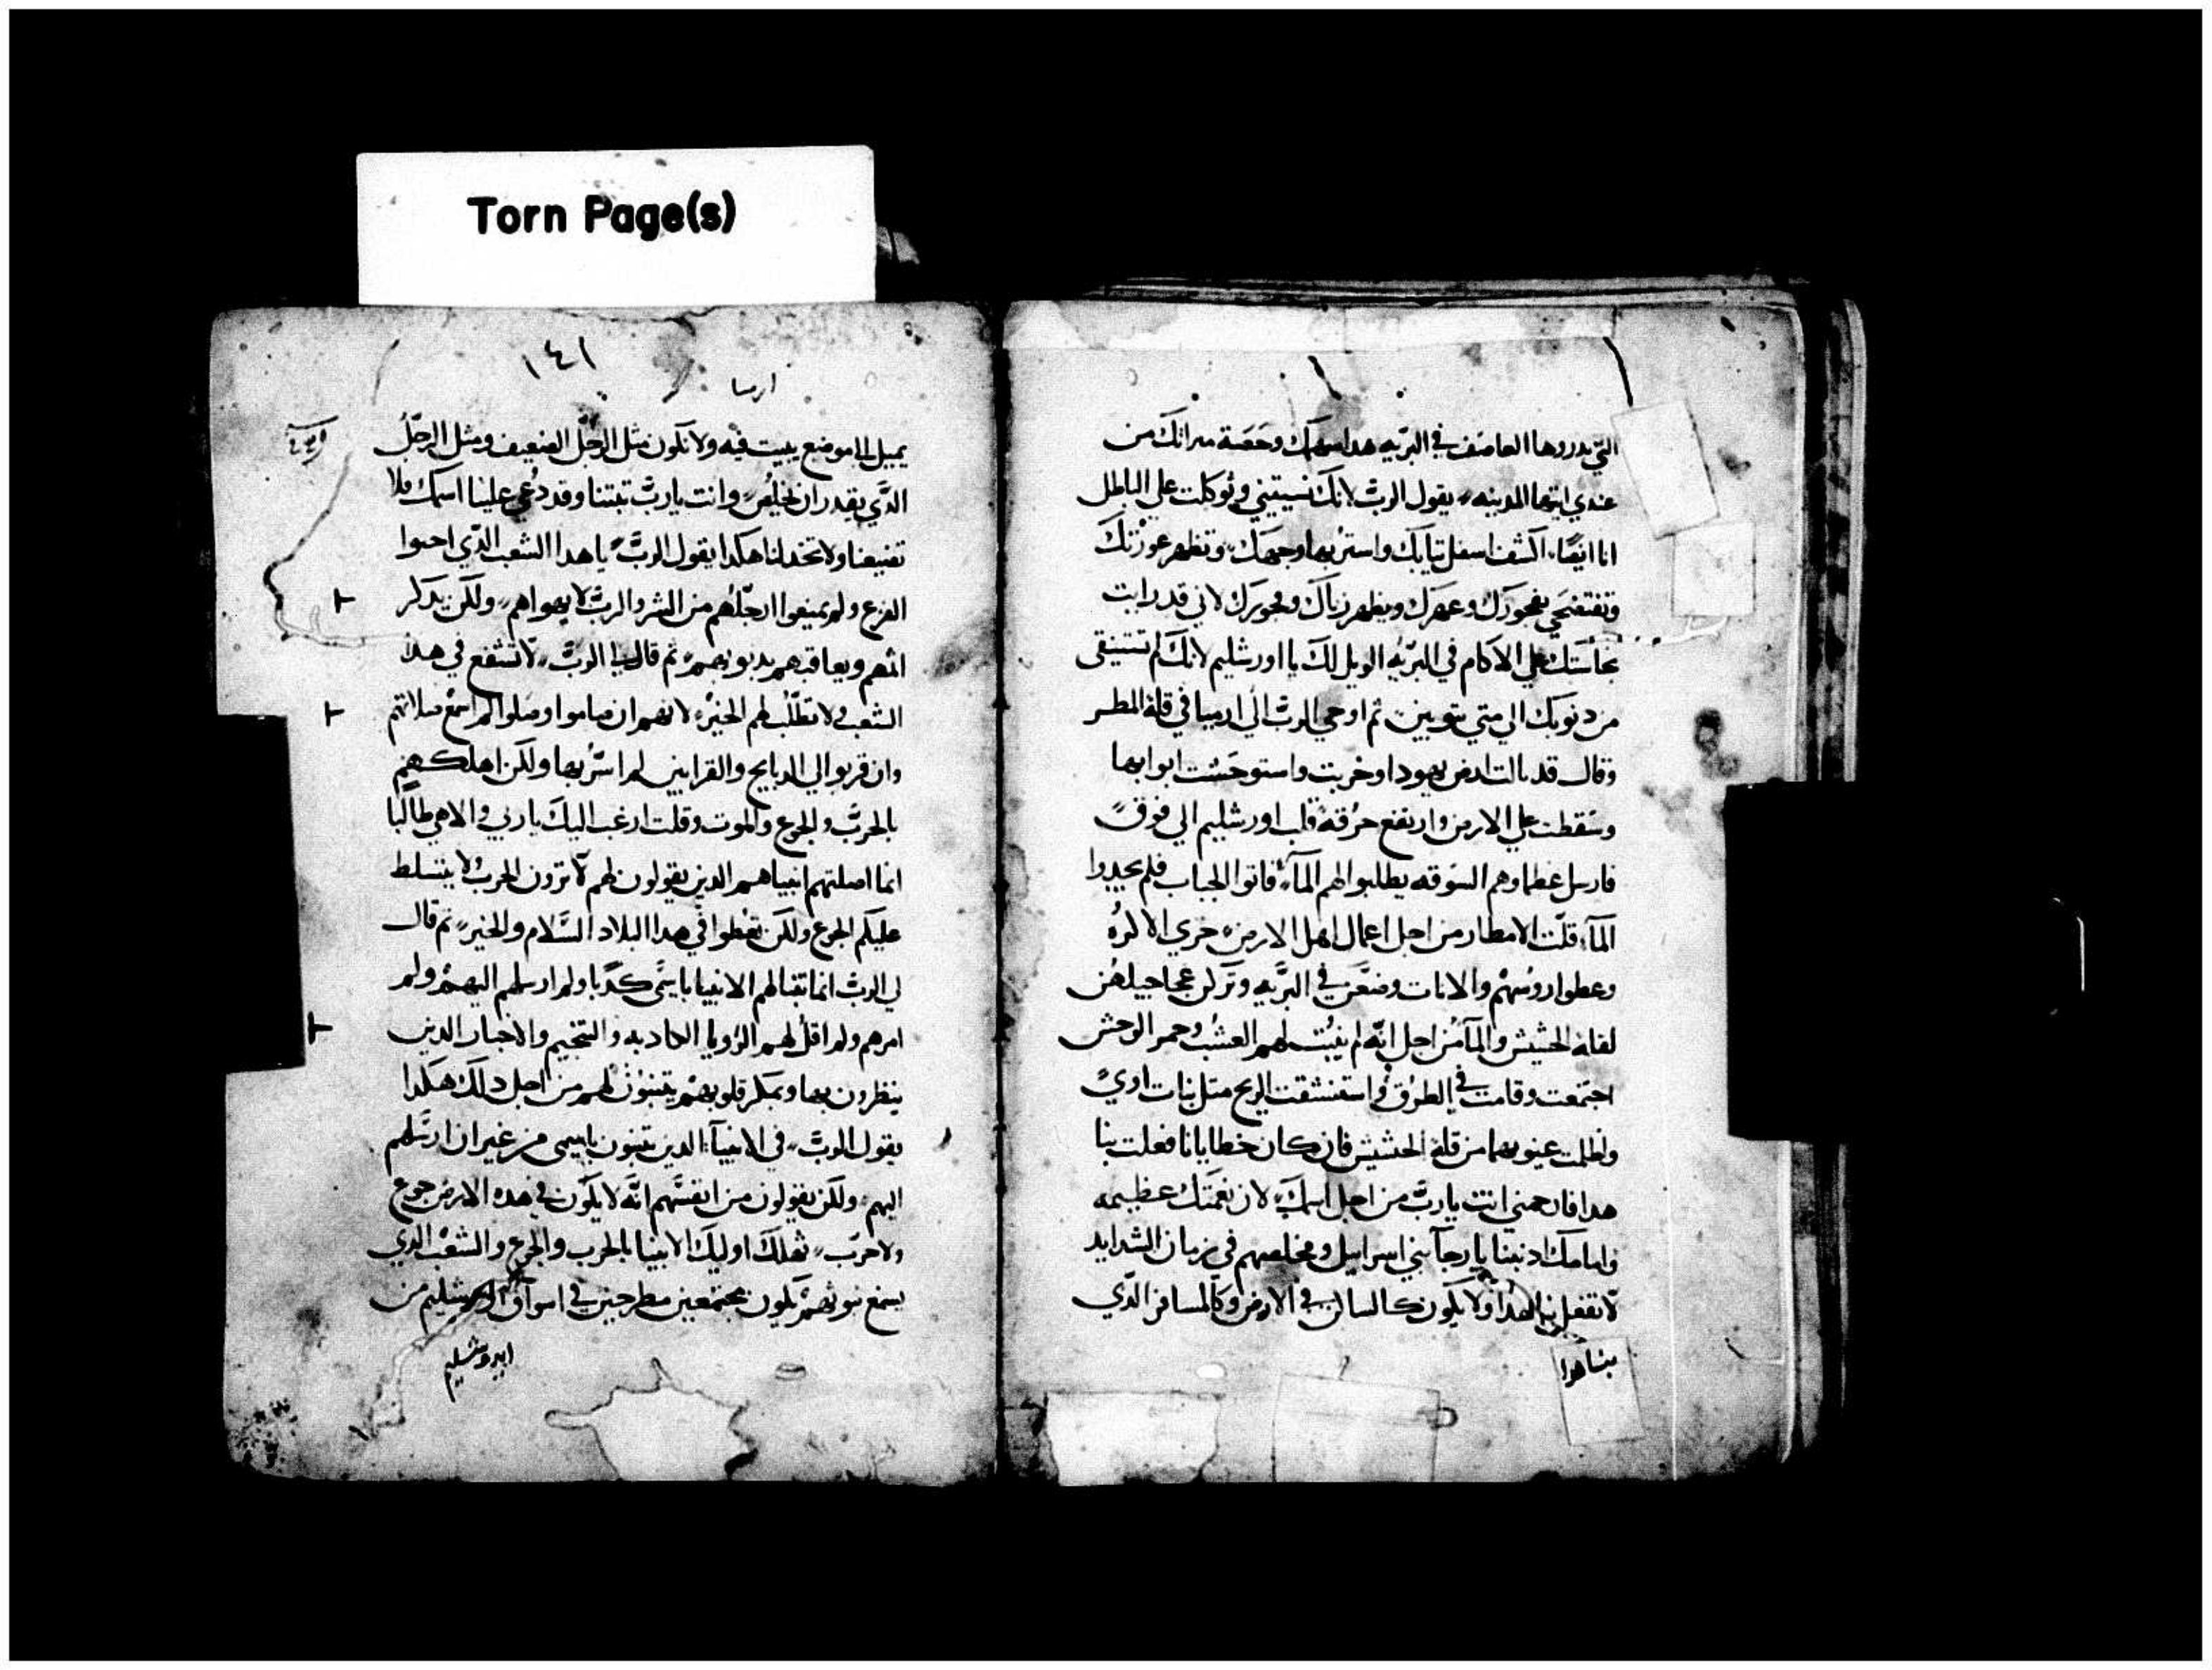 Torn Page(s)
التي يدروها العاصف في البريه هدا سهمك وحصة ميراتك من
عندي ايتها المدينه يقول الرب لانك نسيتيني وتوكلت علي الباطل
انا ايضا اكشف اسفل تيابك واستر بها وجهك وتظهر عورتك
وتفتضحي بفجورك وعهرك ويظهر زناك وفجورك لاني قد رايت
نجاستك علي الاكام في البريه الويل لك يا اورشليم لانك لم تستنقى
من دنوبك الي متي تتوبين تم اوحي الرب الي ارميا في قلة المطر
وقال قد بالت ارض يهودا وخربت واستوحشت ابوابها
وسقطت علي الارض وارتفع حرقة قلب اورشليم الي فوق
فارسل عظماوهم السوقه يطلبوا لهم المآء فاتوا الجباب فلم يجدوا
المآء قلت الامطار من اجل اعمال اهل الارض خزي الاكره
وغطوا روسهم والاناث وضعن في البريه وتركن عجاجيلهن
لقلة الحشيش والمآ من اجل انه لم ينبت لهم العشب وحمر الوحش
اجتمعت وقامت في الطرق واستنشقت الريح متل بنات اوي
واظلمت عيونهما من قلة الحشيش فان كان خطايانا فعلت بنا
هدا فارحمني انت يارب من اجل اسمك لان نعمتك عظيمه
وامامك ادنبنا يا رجآ بني اسراييل ومخلصهم في زمان الشدايد
لا تفعل بنا هدا ولا يكون كالساكن في الارض وكالمسافر الدي
١٤١
ارميا
يميل الا موضع يبيت فيه ولا تكون متل الرجل الضعيف ومتل الرجل
الدي يقدر ان يخلص وانت يارب تبتنا وقد دعي علينا اسمك فلا
تضيعنا ولا تخدلنا هكدا يقول الرب يا هدا الشعب الدي احبوا
الفزع ولم يمنعوا ارجلهم من الشر والرب لا يهواهم ولكن يدكر
اتمهم ويعاقبهم بدنوبهم تم قال لي الرب لا تشفع في هدا
الشعب ولا تطلب لهم الخير لانهم ان صاموا وصلوا لم اسمع صلاتهم
وان قربوا الي الدبايح والقرابين لم اسر بها ولكن اهلكهم
بالحرب والجوع والموت وقلت ارغب اليك يا ربي والاهي طالبا
انما اضلتهم انبياهم الدين يقولون لهم لا ترون الحرب ولا يتسلط
عليكم الجوع ولكن تعطوا في هدا البلاد السلام والخير تم قال
لي الرب انما تنبا لهم الانبيا باسمي كدبا ولم ارسلهم اليهم ولم
امرهم ولم اقل لهم الرويا الكادبه والتنجيم والاخبار الدين
ينظرون بها وبمكر قلوبهم يتنبون لهم من اجل دلك هكدا
يقول الرب في الانبيآ الدين يتنبون باسمي من غير ان ارسلهم
اليهم ولكن يقولون من انفسهم انه لا يكون في هده الارض جوع
ولا حرب تهلك اوليك الانبيا بالحرب والجوع والشعب الدي
يسمع نبوتهم يكون مجتمعين مطرحين في اسواق اورشليم من